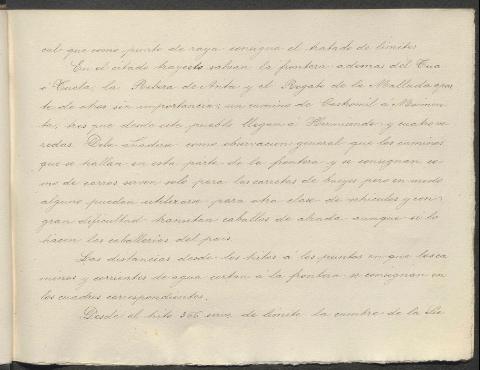 cal que como punto de raya consigna el tratado de limites
En el citado trayecto salvan la frontera ademas del Tua
ó Tuela, la Ribera de Anta y el Regato de la Mallada apar
te de otras sin importancia; un camino de Castromil á Moimen
ta, tres que desde este pueblo llegan á Hermisende y cuatro ve
redas. Debe añadirse como observacion general que los caminos
que se hallan en esta parte de la frontera y se consignan co
mo de carros sirven solo para las carretas de bueyes pero en modo
alguno pueden utilizarse para otra clase de vehiculos y con
gran dificultad transitan caballos de alzada aunque si lo
hacen las caballerias del pais.
Las distancias desde los hitos á los puntos en que los ca
minos y corrientes de agua cortan á la frontera se consignan en
los cuadros correspondientes.
Desde el hito 366 sirve de limite la cumbre de la Sie